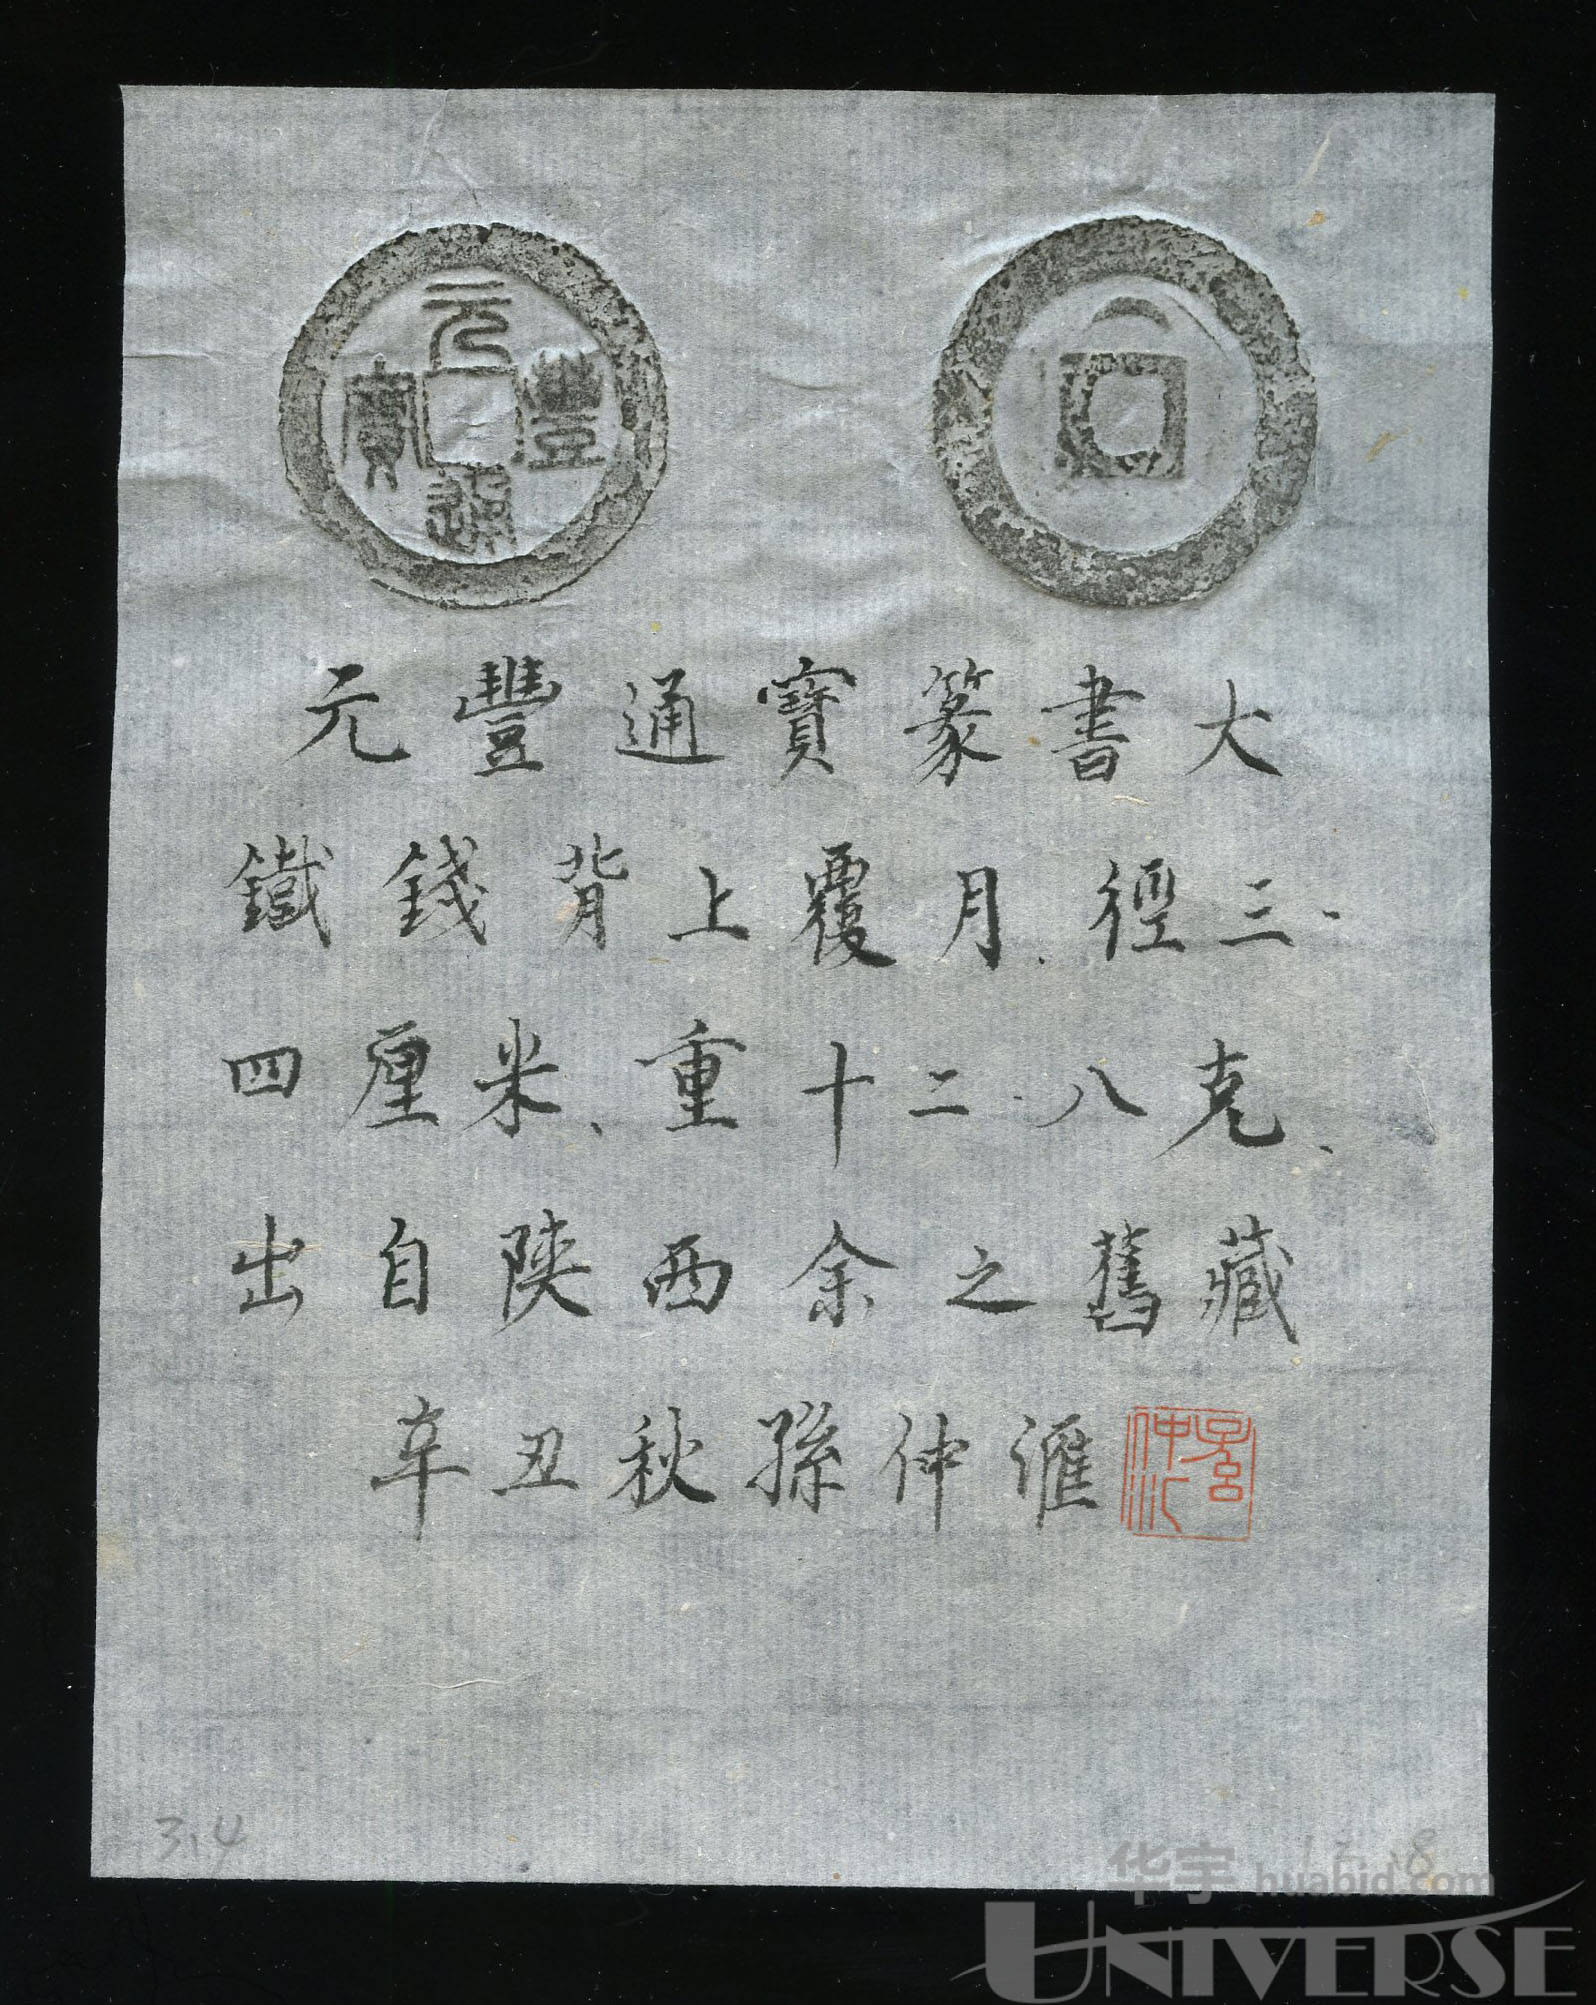 元豐通寶
元豐通寶篆書大
鐵錢背上覆月、徑三·
四厘米、重十二·八克、
出自陝西余之舊藏
辛丑秋孫仲滙
孫仲匯
3.4
12.8
华宇 huabid.com
UNIVERSE